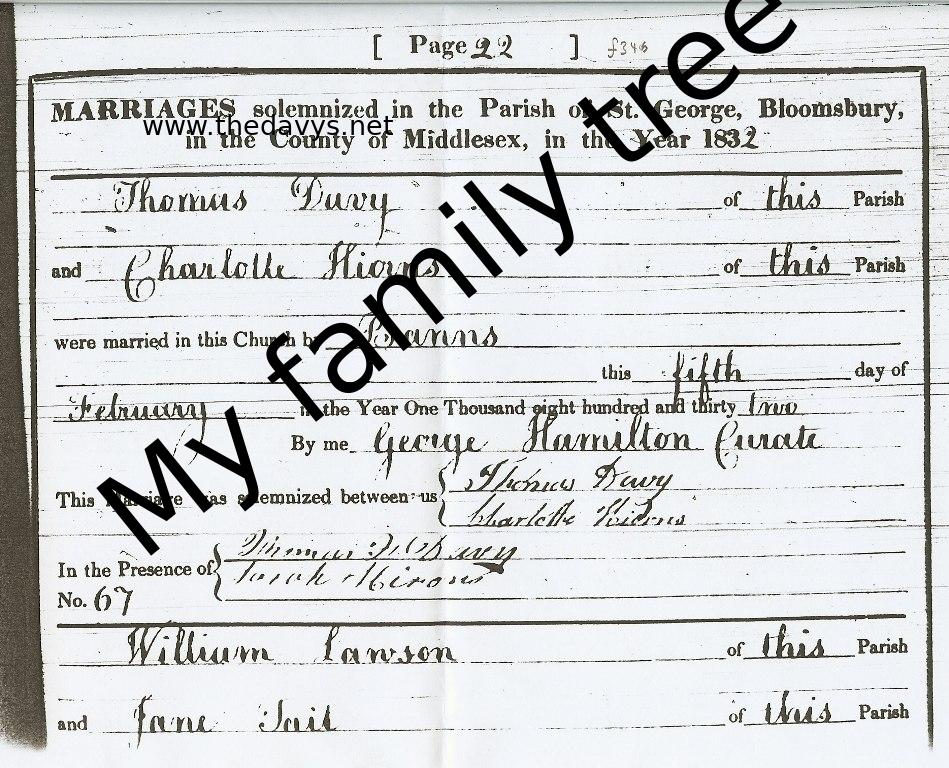 [ Page 22 ] f346
MARRIAGES solemnized in the Parish of St. George, Bloomsbury,
www.thedavys.net
in the County of Middlesex, in the Year 1832
My family tree
Thomas Davy of this Parish
and Charlotte Hirons of this Parish
were married in this Church by Banns
this fifth day of
February in the Year One Thousand eight hundred and thirty two
By me George Hamilton Curate
This Marriage was solemnized between us Thomas Davy
Charlotte Hirons
In the Presence of Thomas Davy
Sarah Hirons
No. 67
William Lawson of this Parish
and Jane Tait of this Parish